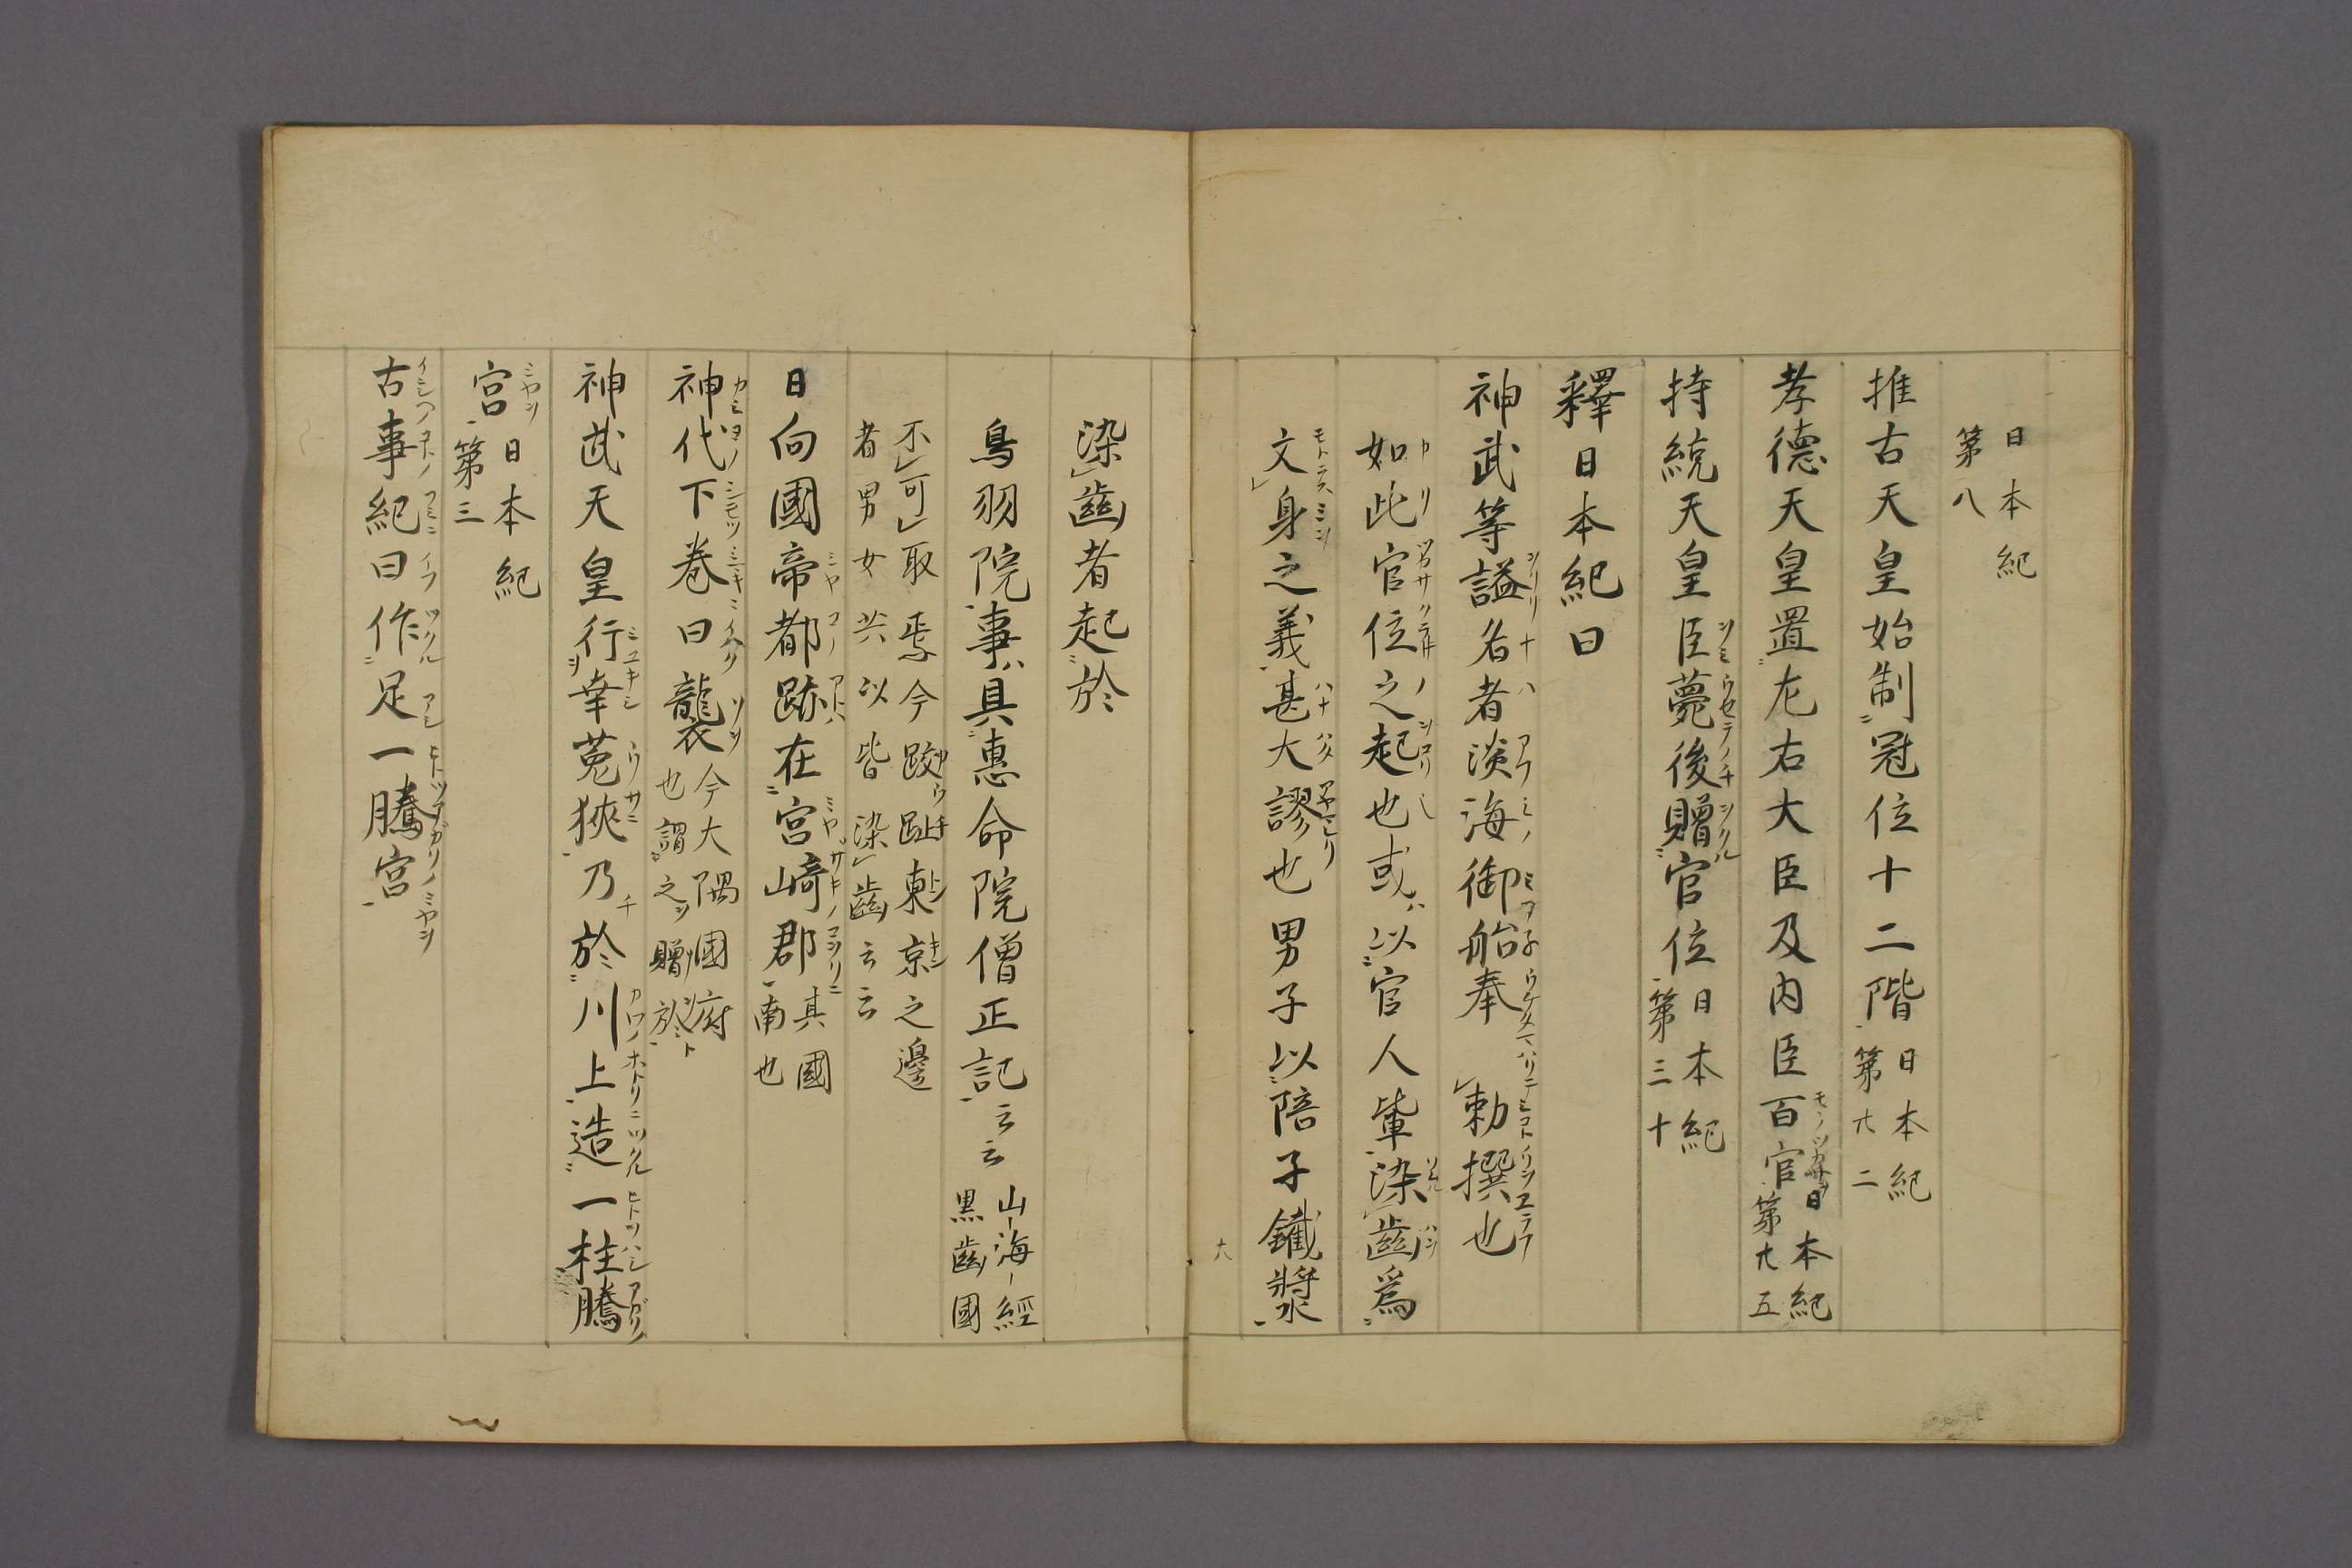 日本紀
第八
推古天皇始制冠位十二階日本紀
第廿二
孝德天皇置左右大臣及内臣百官日本紀
第廿五
持統天皇臣薨後贈官位日本紀
第三十
釋日本紀曰
神武等謚名者淡海御船奉　勅撰也
如此官位之起也或以官人輩染齒爲
文身之義甚大謬也男子以陪子鐵漿
染齒者起於
鳥羽院事具惠命院僧正記云云山海經
黑齒國
不可取焉今跤趾東京之邊
者男女共以皆染齒云云
日向國帝都跡在宮崎郡其國
南也
神代下卷曰襲今大隅國府
也謂之贈於
神武天皇行幸菟狹乃於川上造一柱騰
宮日本紀
第三
古事紀曰作足一騰宮